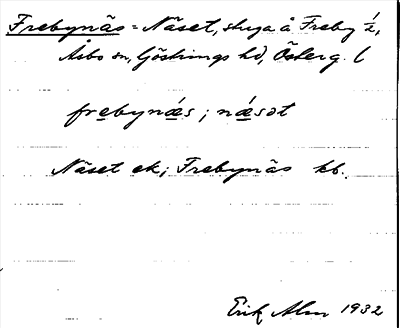 Frebynäs = Näset, stuga å Freby ½,
Åsbo sn, Göstrings hd, Österg. l
frebynǽs ; nǽsət
Näset ek; Frebynäs kb.
Erik Alm 1932